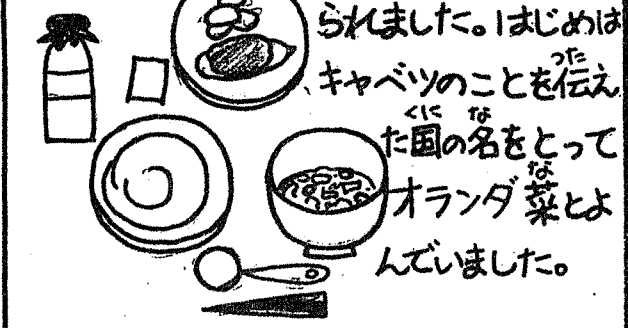 られました。はじめは
キャベツのことを伝え
た国の名をとって
オランダ菜とよ
んでいました。
つた
くに
な
な